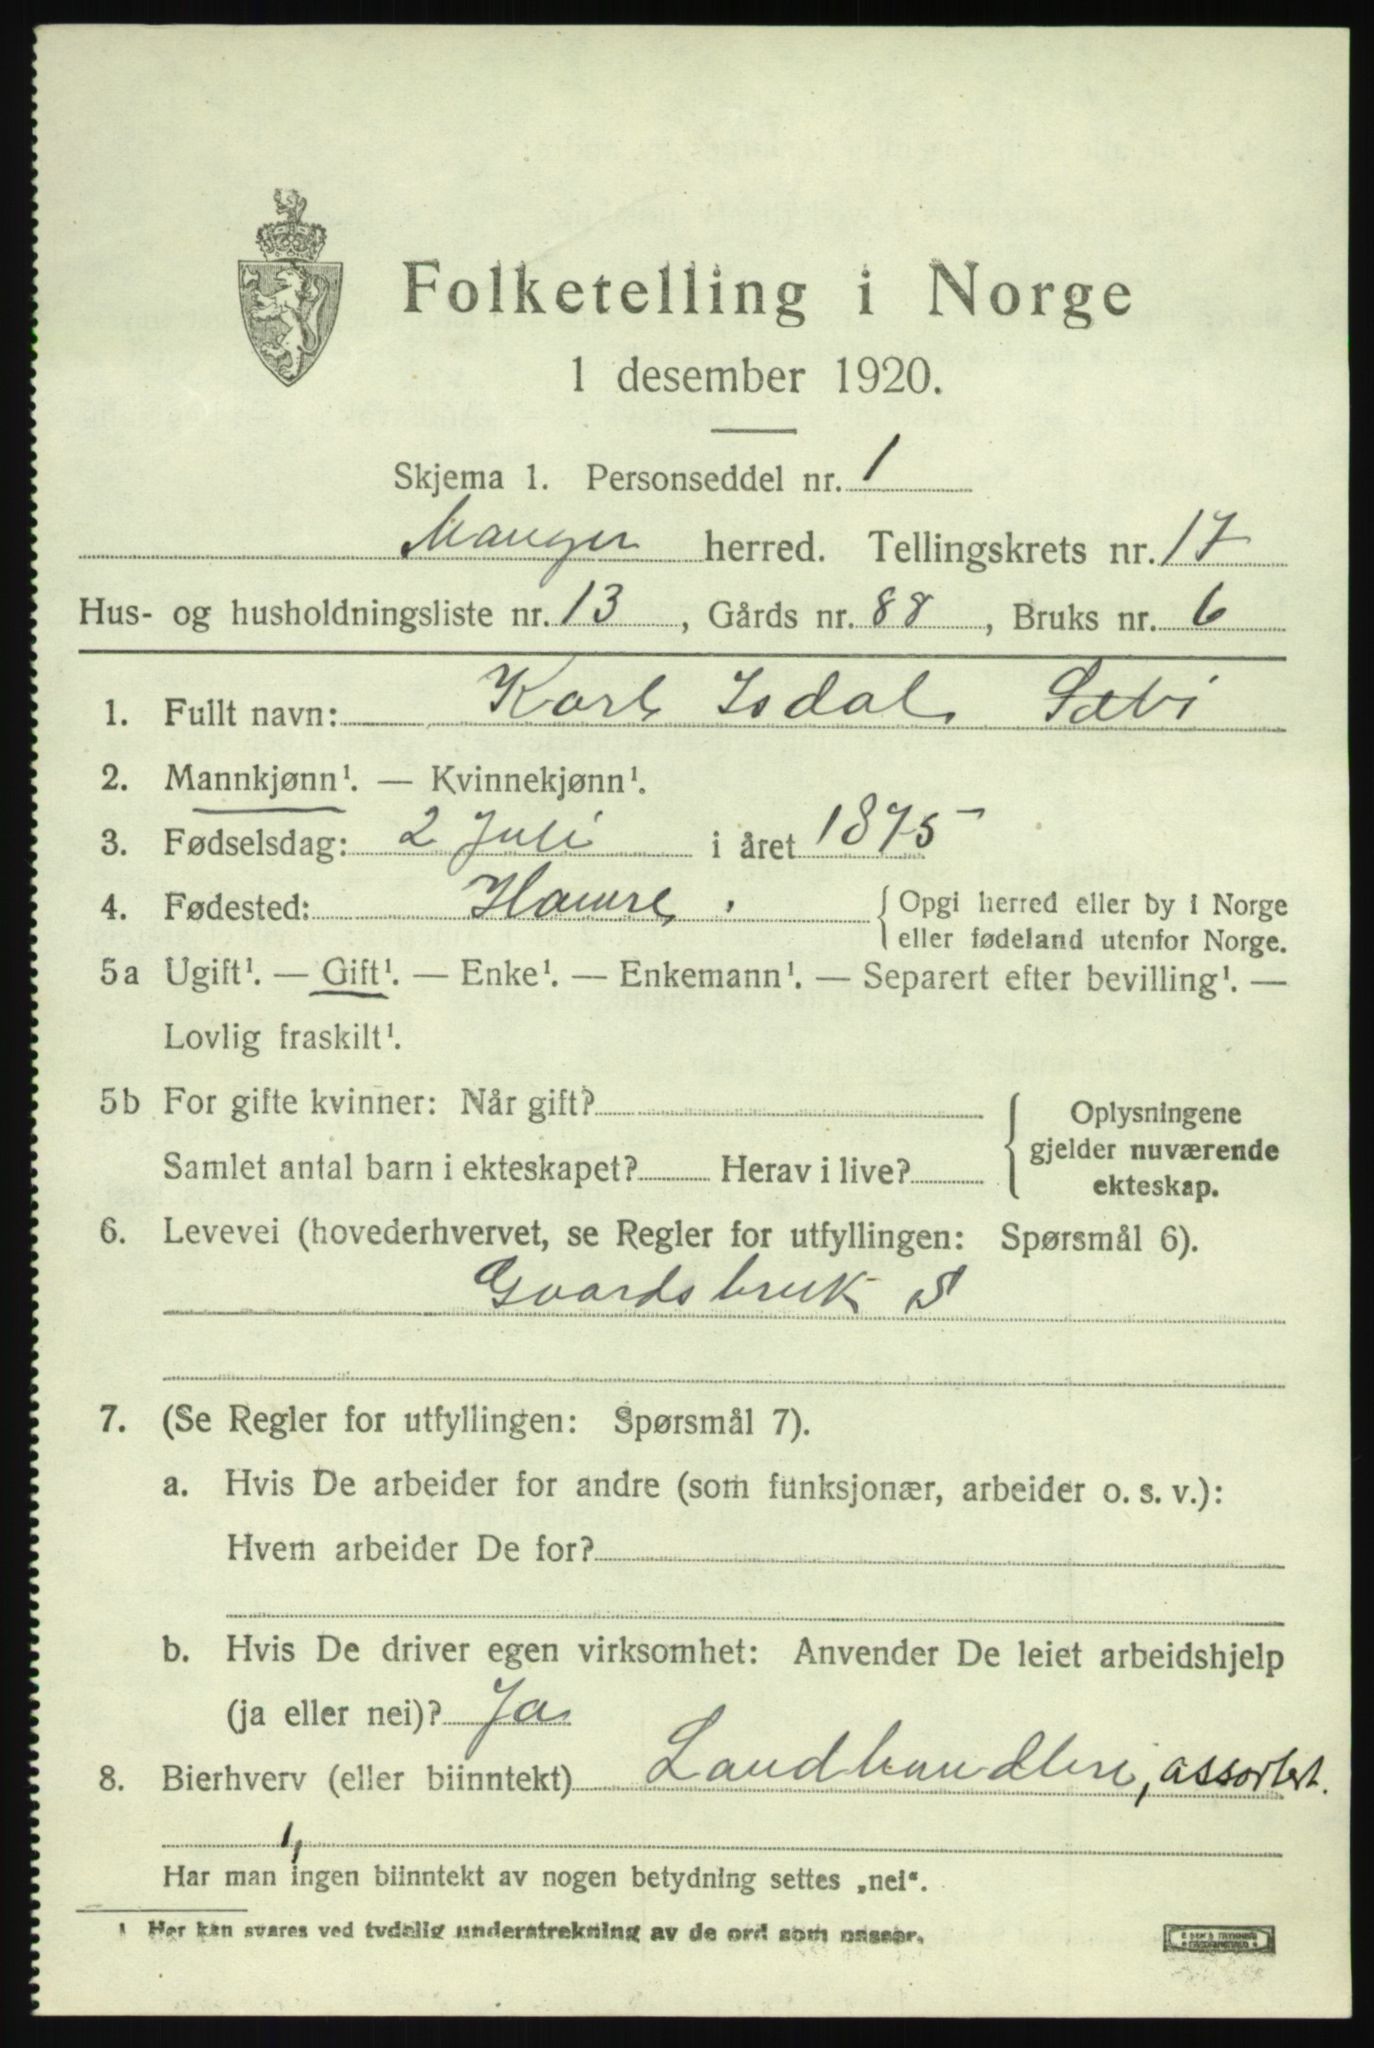 Folketelling i Norge
1 desember 1920.
Skjema 1. Personseddel nr. 1
Manger herred. Tellingskrets nr. 17
Hus- og husholdningsliste nr. 13, Gårds nr. 88, Bruks nr. 6
1. Fullt navn: Karl Isdal Sæbø
2. Mannkjønn¹. — Kvinnekjønn¹.
3. Fødselsdag: 2 Juli i året 1875
4. Fødested: Hamre. { Opgi herred eller by i Norge
eller fødeland utenfor Norge.
5a Ugift¹. — Gift¹. — Enke¹. — Enkemann¹. — Separert efter bevilling¹. —
Lovlig fraskilt¹.
5b For gifte kvinner: Når gift?
Samlet antal barn i ekteskapet? Herav i live?
{ Oplysningene
gjelder nuværende
ekteskap.
6. Levevei (hovederhvervet, se Regler for utfyllingen: Spørsmål 6).
Gaardsbruk S
7. (Se Regler for utfyllingen: Spørsmål 7).
a. Hvis De arbeider for andre (som funksjonær, arbeider o. s. v.):
Hvem arbeider De for?
b. Hvis De driver egen virksomhet: Anvender De leiet arbeidshjelp
(ja eller nei)? Ja
8. Bierhverv (eller biinntekt) Landhandleri, assortert.
1,
Har man ingen biinntekt av nogen betydning settes „nei“.
¹ Her kan svares ved tydelig understrekning av de ord som passer.